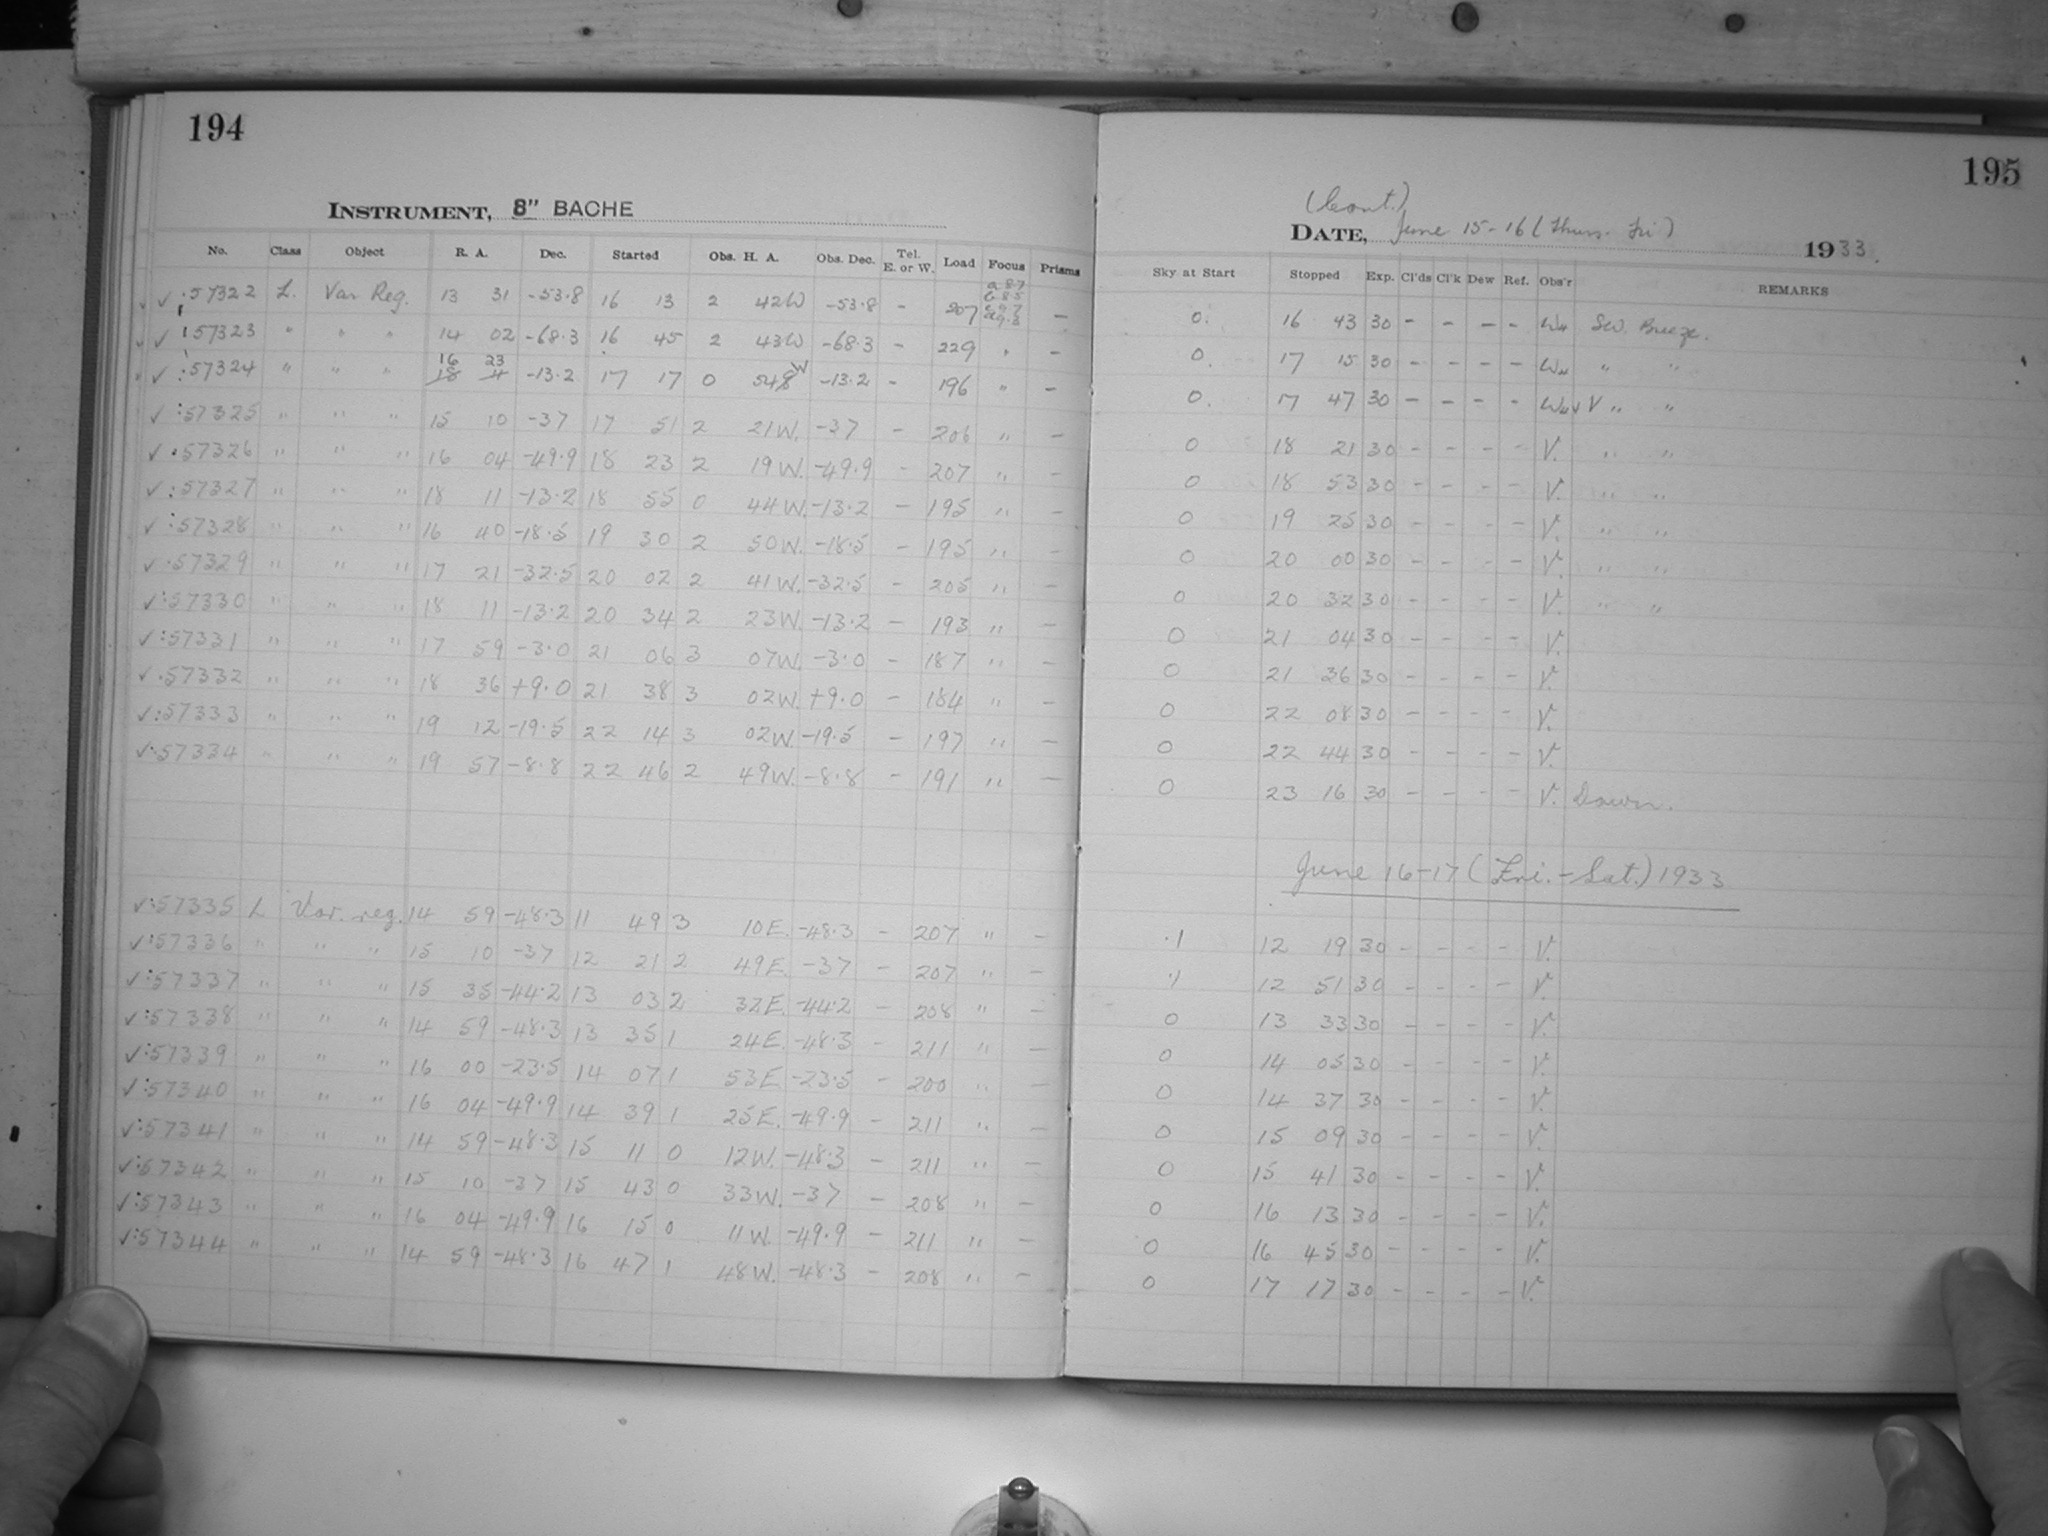 194
INSTRUMENT, 8" BACHE
No. Class Object R. A. Dec. Started Obs. H. A. Obs. Dec. Tel. E. or W. Load Focus Prisms
✓ 57322 L. Var Reg. 13 31 -53.8 16 13 2 42W -53.8 - 207 -
✓ 57323 " " " 14 02 -68.3 16 45 2 43W -68.3 - 229 " -
✓ 57324 " " " 16 23 -13.2 17 17 0 54W -13.2 - 196 " -
✓ 57325 " " " 15 10 -37 17 51 2 21W. -37 - 206 " -
✓ 57326 " " " 16 04 -49.9 18 23 2 19W. -49.9 - 207 " -
✓ 57327 " " " 18 11 -13.2 18 55 0 44W. -13.2 - 195 " -
✓ 57328 " " " 16 40 -18.5 19 30 2 50W. -18.5 - 195 " -
✓ 57329 " " " 17 21 -32.5 20 02 2 41W. -32.5 - 205 " -
✓ 57330 " " " 18 11 -13.2 20 34 2 23W. -13.2 - 193 " -
✓ 57331 " " " 17 59 -3.0 21 06 3 07W. -3.0 - 187 " -
✓ 57332 " " " 18 36 +9.0 21 38 3 02W. +9.0 - 184 " -
✓ 57333 " " " 19 12 -19.5 22 14 3 02W. -19.5 - 197 " -
✓ 57334 " " " 19 57 -8.8 22 46 2 49W. -8.8 - 191 " -
✓ 57335 L Var. reg. 14 59 -48.3 11 49 3 10E. -48.3 - 207 " -
✓ 57336 " " " 15 10 -37 12 21 2 49E. -37 - 207 " -
✓ 57337 " " " 15 35 -44.2 13 03 2 32E. -44.2 - 208 " -
✓ 57338 " " " 14 59 -48.3 13 35 1 24E. -48.3 - 211 " -
✓ 57339 " " " 16 00 -23.5 14 07 1 53E. -23.5 - 200 " -
✓ 57340 " " " 16 04 -49.9 14 39 1 25E. -49.9 - 211 " -
✓ 57341 " " " 14 59 -48.3 15 11 0 12W. -48.3 - 211 " -
✓ 57342 " " " 15 10 -37 15 43 0 33W. -37 - 208 " -
✓ 57343 " " " 16 04 -49.9 16 15 0 11W. -49.9 - 211 " -
✓ 57344 " " " 14 59 -48.3 16 47 1 48W. -48.3 - 208 " -
195
(Cont.)
DATE, June 15-16 (Thurs. Fri) 1933.
Sky at Start Stopped Exp. Cl'ds Cl'k Dew Ref. Obs'r REMARKS
0. 16 43 30 - - - - SW. Breeze.
0. 17 15 30 - - - - " "
0. 17 47 30 - - - - V " "
0 18 21 30 - - - - V. " "
0 18 53 30 - - - - V. " "
0 19 25 30 - - - - V. " "
0 20 00 30 - - - - V. " "
0 20 32 30 - - - - V. " "
0 21 04 30 - - - - V.
0 21 36 30 - - - - V.
0 22 08 30 - - - - V.
0 22 44 30 - - - - V.
0 23 16 30 - - - - V. Dawn.
June 16-17 (Fri.-Sat.) 1933
.1 12 19 30 - - - - V.
.1 12 51 30 - - - - V.
0 13 33 30 - - - - V.
0 14 05 30 - - - - V.
0 14 37 30 - - - - V.
0 15 09 30 - - - - V.
0 15 41 30 - - - - V.
0 16 13 30 - - - - V.
0 16 45 30 - - - - V.
0 17 17 30 - - - - V.